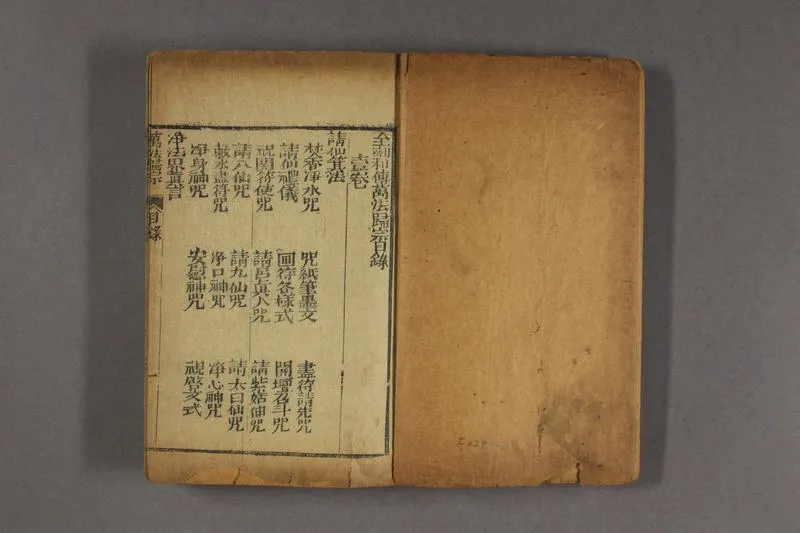 全刻秘傳萬法歸宗目錄
壹卷
請仙箕法
焚香净水咒 咒紙筆墨文 畫符請仙咒
請仙禮儀 画符各樣式 開壇召斗咒
祝関符使咒 請呂真人咒 請紫姑仙咒
請八仙咒 請九仙咒 請太白仙咒
敕水畫符咒 净口神咒 净心神咒
净身神咒 安慰神咒 祝啓文式
净法界真言
萬法歸宗 目錄